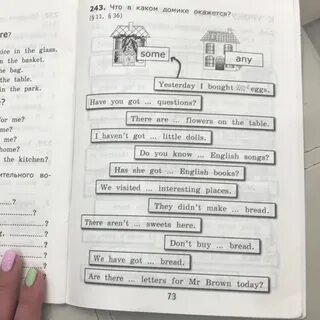 243. Что в каком домике окажется?
(§ 12, § 36)
some
any
Yesterday I bought eggs.
Have you got ... questions?
There are ... flowers on the table.
I haven't got ... little dolls.
Do you know ... English songs?
Has she got ... English books?
We visited ... interesting places.
They didn't make ... bread.
There aren't ... sweets here.
Don't buy ... bread.
We have got ... bread.
Are there ... letters for Mr Brown today?
73
ice in the glass.
n the basket.
he bag.
the table.
in the park.
e?
or me?
me?
home?
the kitchen?
ительного во-
?
?
?
?
?